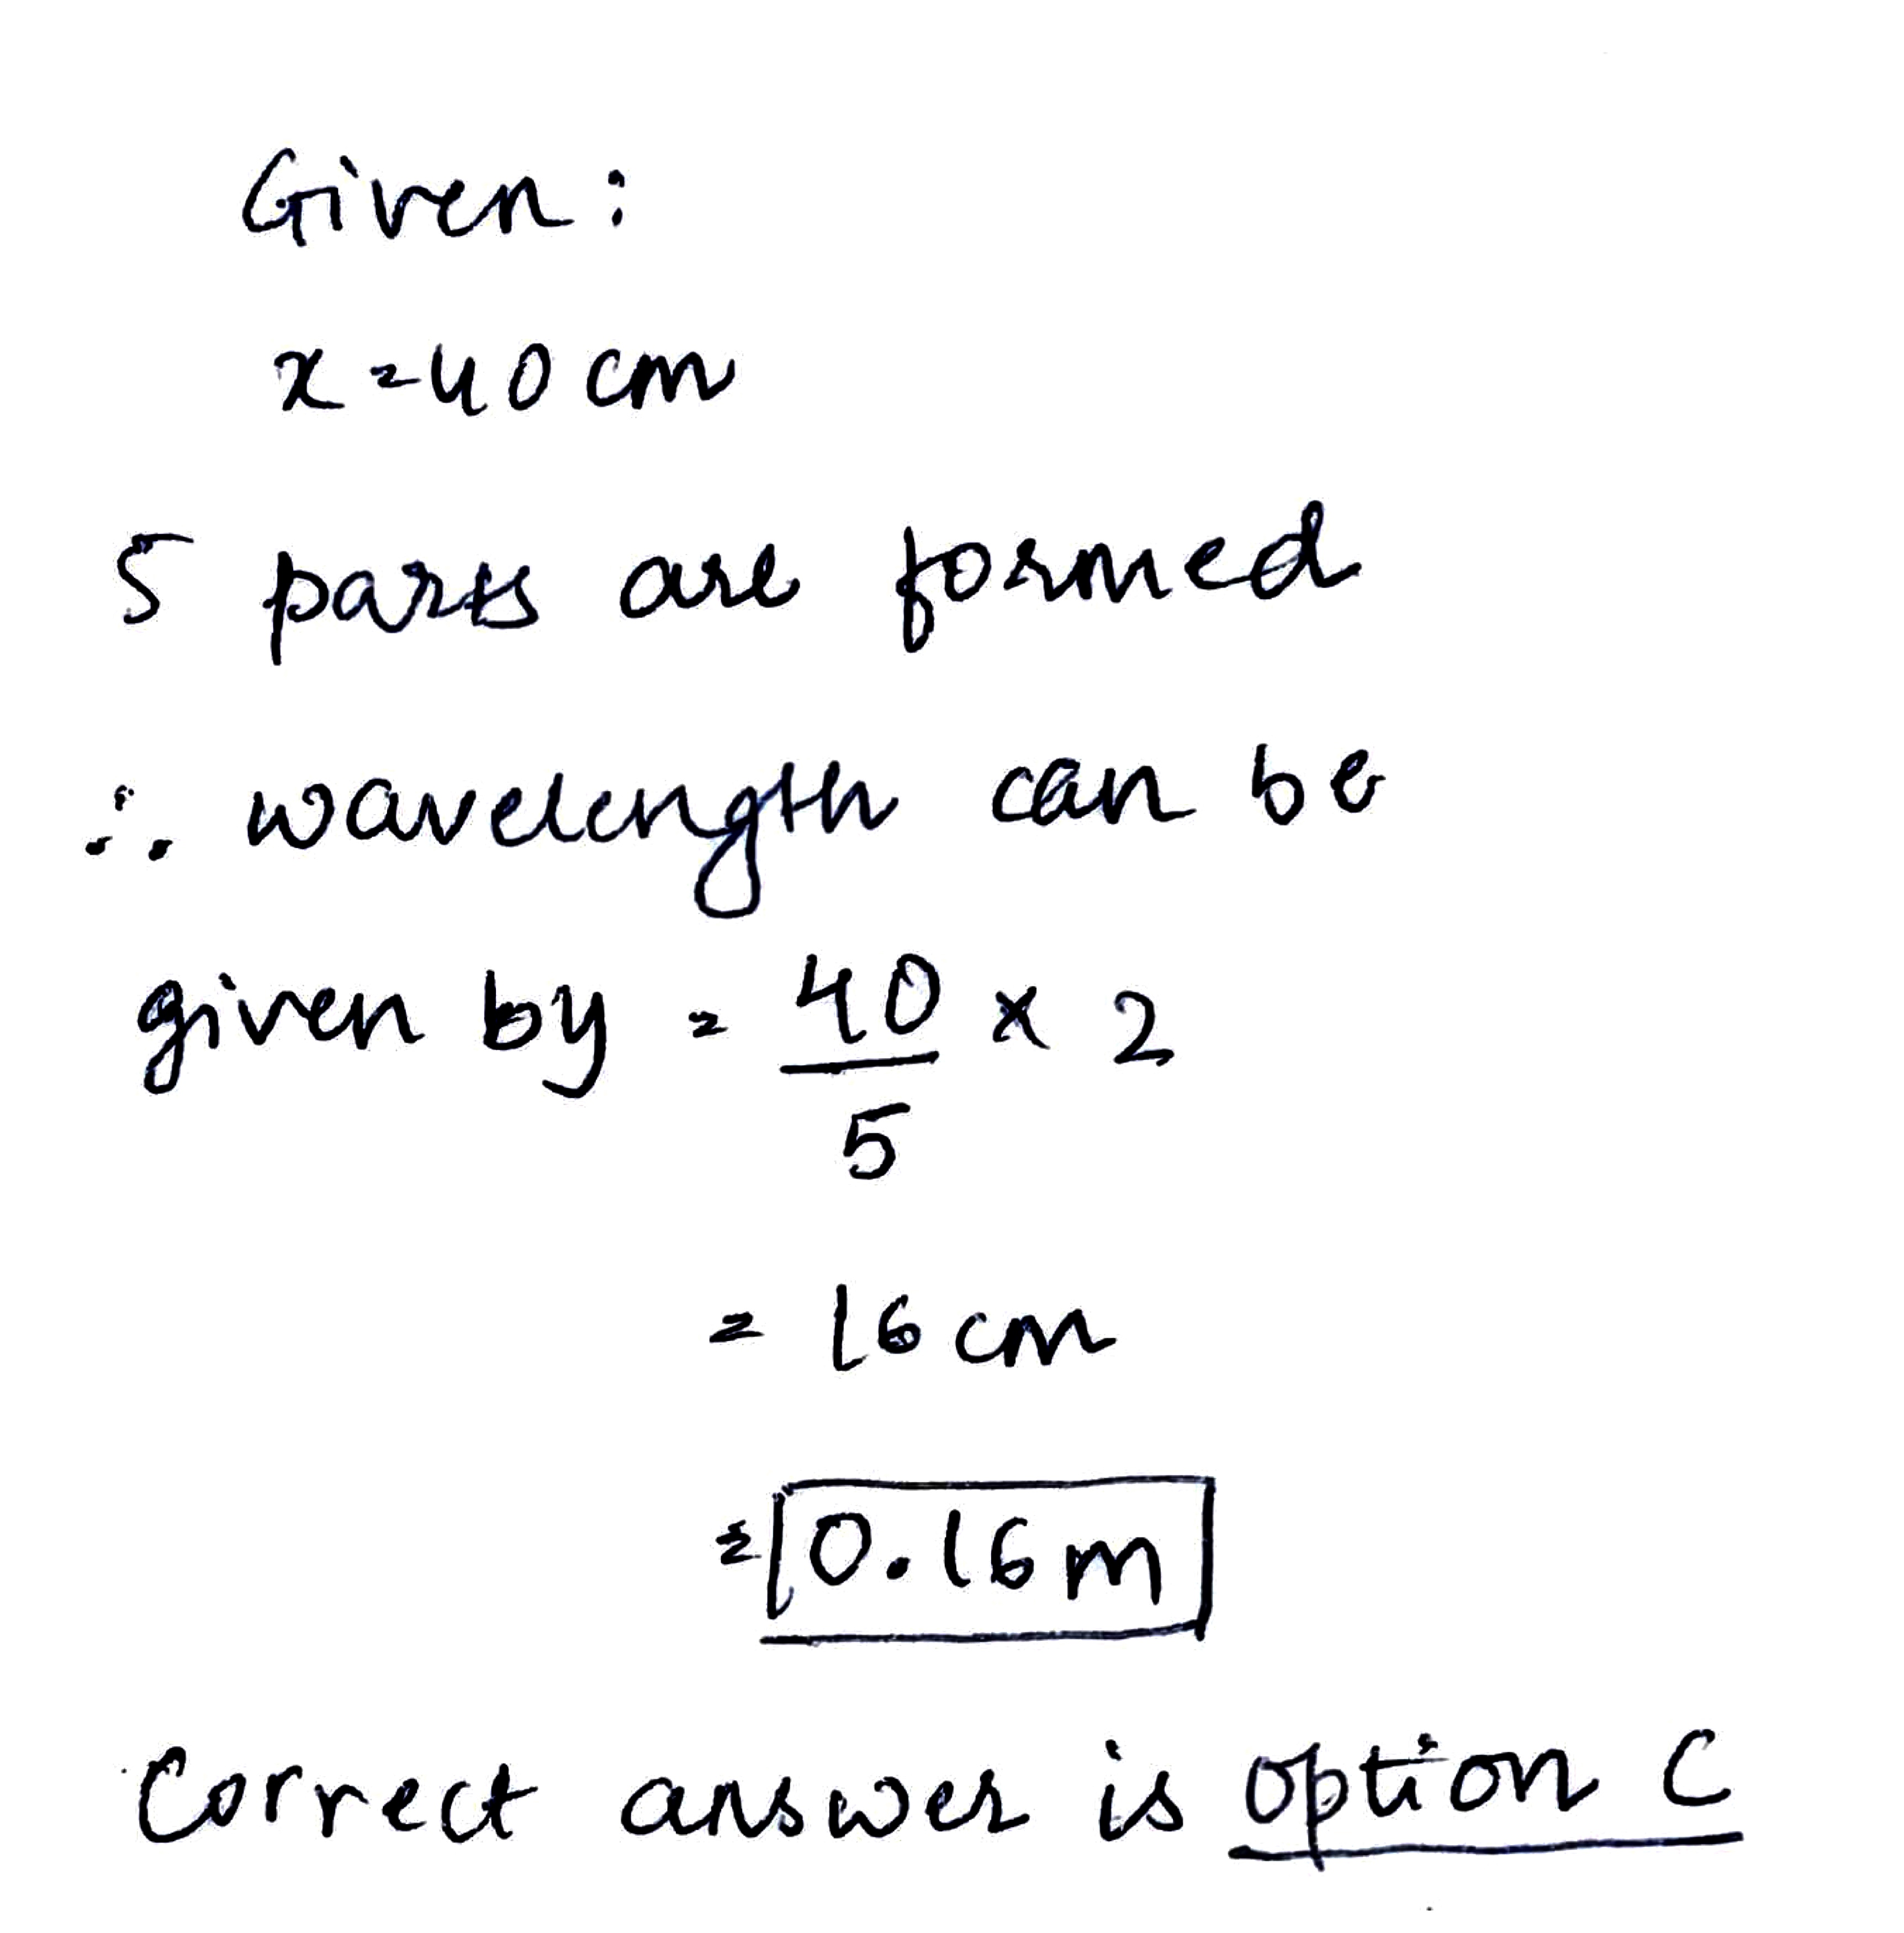 Given:
x = 40 cm
5 parts are formed
∴ wavelength can be
given by = 40/5 × 2
= 16 cm
= 0.16 m
Correct answer is option C